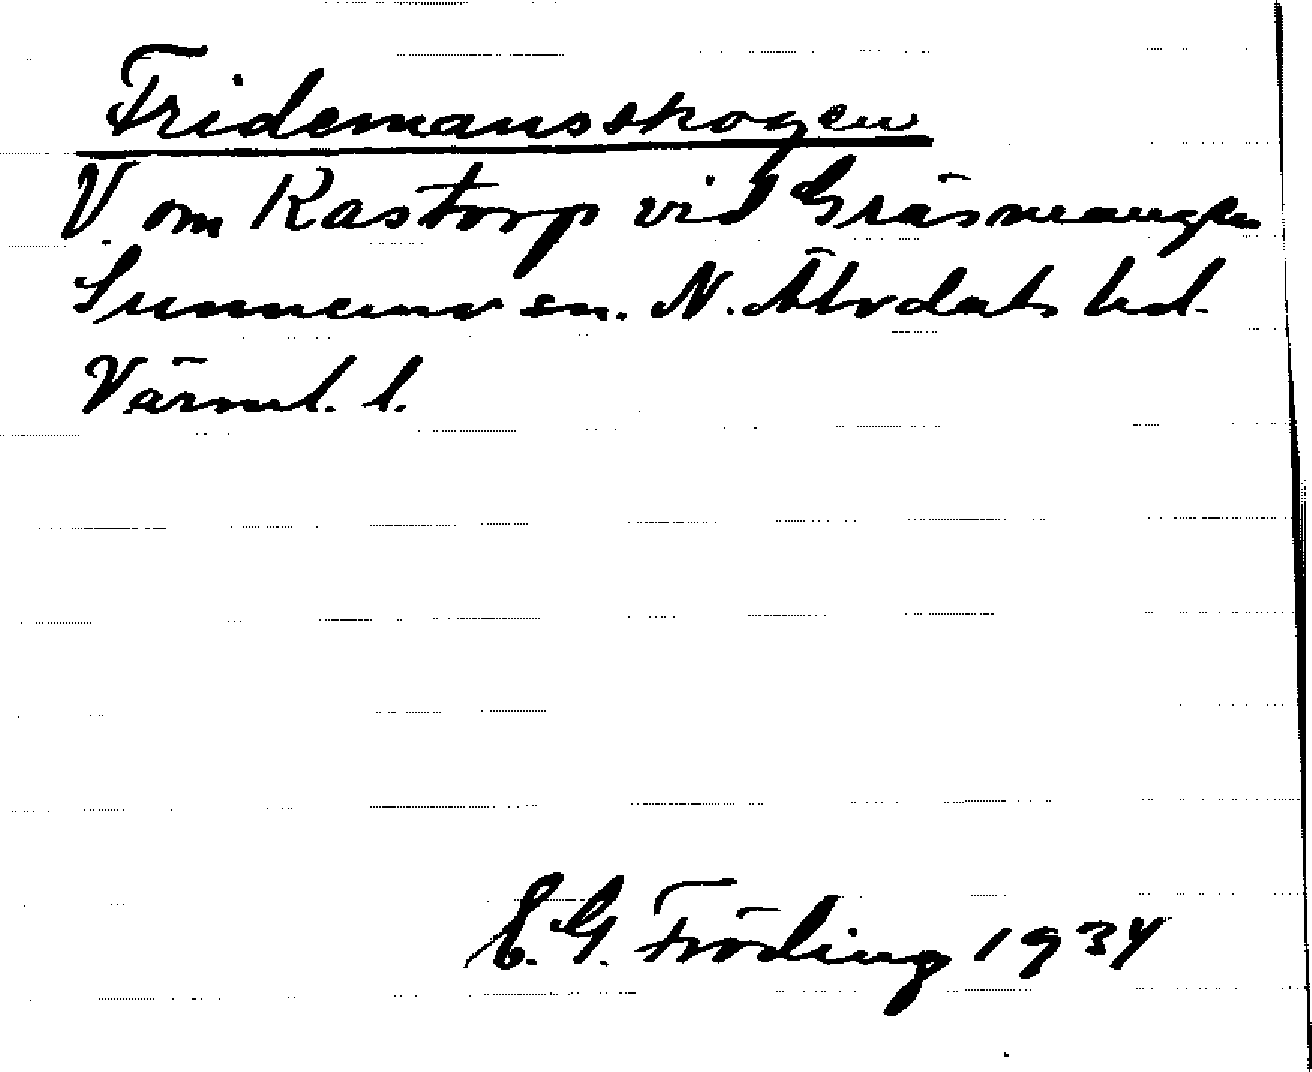 Fridemansskogen
V. om Rastorp vid Gräsmangen
Sunnemo sn. N. Älvdals hd.
Värml. l.
E. G. Fröding 1934